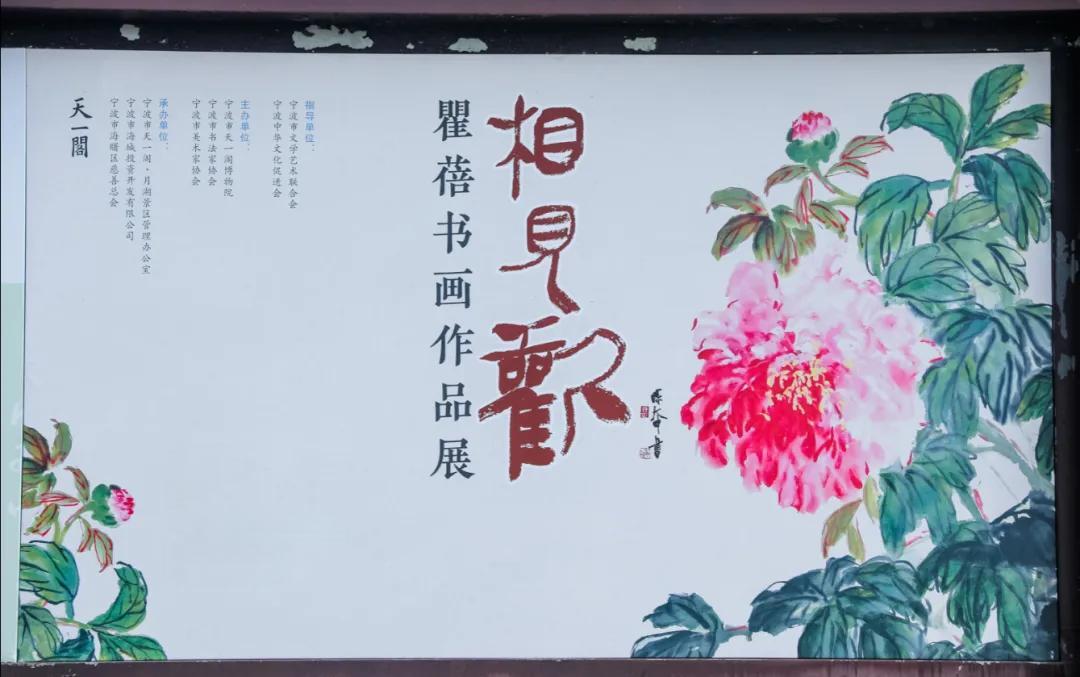 相見歡
瞿蓓书画作品展
指导单位：
宁波市文学艺术联合会
宁波中华文化促进会
主办单位：
宁波市天一阁博物院
宁波市书法家协会
宁波市美术家协会
承办单位：
宁波市天一阁·月湖景区管理办公室
宁波市海城投资开发有限公司
宁波市海曙区慈善总会
天一閣